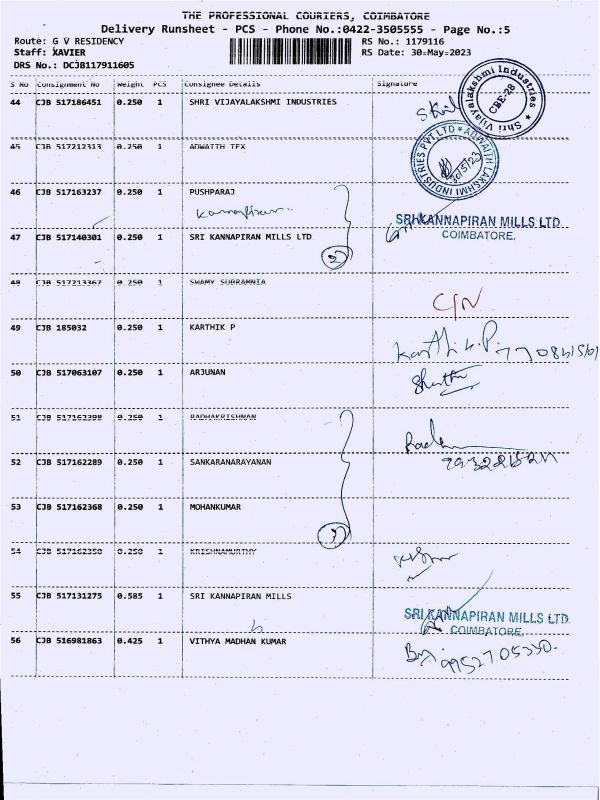 THE PROFESSIONAL COURIERS, COIMBATORE
Delivery Runsheet - PCS - Phone No.:0422-3505555 - Page No.:5
Route: G V RESIDENCY RS No.: 1179116
Staff: XAVIER RS Date: 30-May-2023
DRS No.: DCJB117911605
S No Consignment No Weight PCS Consignee Details Signature
44 CJB 517186451 0.250 1 SHRI VIJAYALAKSHMI INDUSTRIES
Shri Vijayalakshmi Industries
CBE-28
45 CJB 517212313 0.250 1 ADWAITH TEX
ADWAITH LAKSHMI INDUSTRIES PVT LTD
30/5/23
46 CJB 517163237 0.250 1 PUSHPARAJ
Kannapiran
SRI KANNAPIRAN MILLS LTD
COIMBATORE.
47 CJB 517140301 0.250 1 SRI KANNAPIRAN MILLS LTD
2
48 CJB 517213367 0.250 1 SWAMY SUBRAMNIA
C/N
49 CJB 185032 0.250 1 KARTHIK P
Karthik.P.
50 CJB 517063107 0.250 1 ARJUNAN
51 CJB 517162398 0.250 1 RADHAKRISHNAN
52 CJB 517162289 0.250 1 SANKARANARAYANAN
53 CJB 517162368 0.250 1 MOHANKUMAR
54 CJB 517162350 0.250 1 KRISHNAMURTHY
55 CJB 517131275 0.585 1 SRI KANNAPIRAN MILLS
SRI KANNAPIRAN MILLS LTD
COIMBATORE.
56 CJB 516981863 0.425 1 VITHYA MADHAN KUMAR
9952705330.